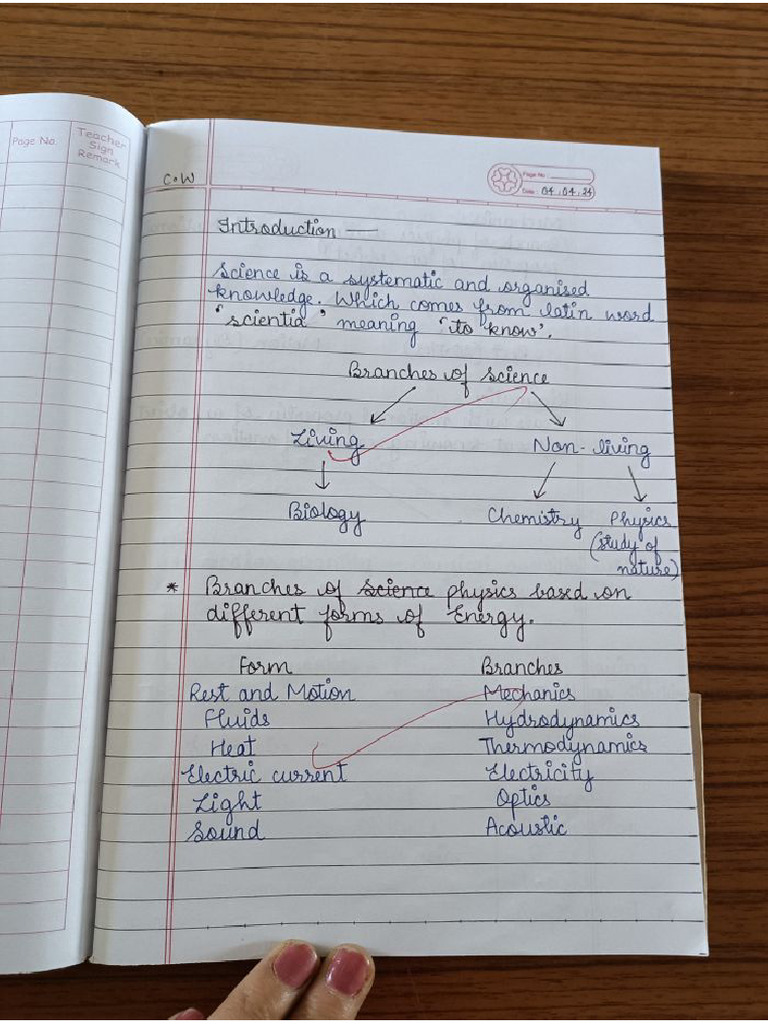 Page No.
Teacher
Sign
Remark
C.W
Page No :
Date : 04.04.24
Introduction
Science is a systematic and organised
knowledge. Which comes from latin word
"scientia" meaning 'to know'.
Branches of science
Living
Non-living
Biology
Chemistry
Physics
(study of
nature)
* Branches of science physics based on
different forms of Energy.
Form Branches
Rest and Motion Mechanics
Fluids Hydrodynamics
Heat Thermodynamics
Electric current Electricity
Light Optics
Sound Acoustic